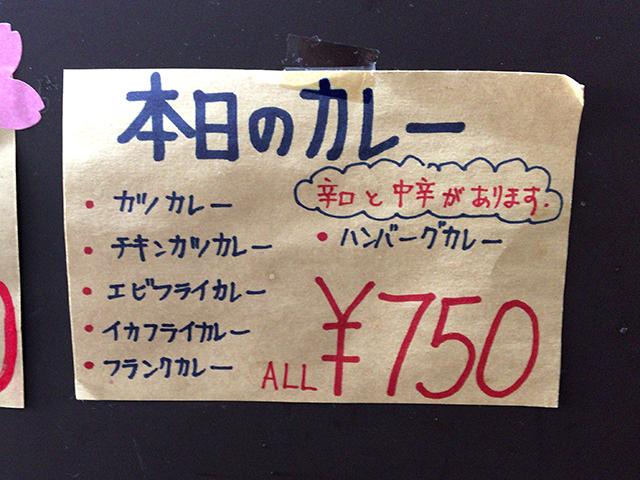 本日のカレー
辛口と中辛があります.
• カツカレー
• チキンカツカレー
• エビフライカレー
• イカフライカレー
• フランクカレー
• ハンバーグカレー
ALL ¥750